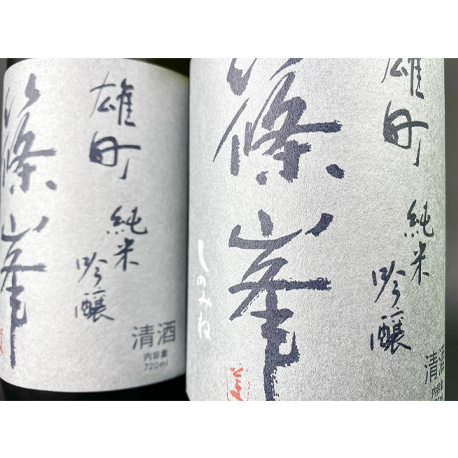 雄町
篠峯
純米
吟醸
清酒
内容量
720ml
雄町
篠峯
しのみね
純米
吟醸
清酒